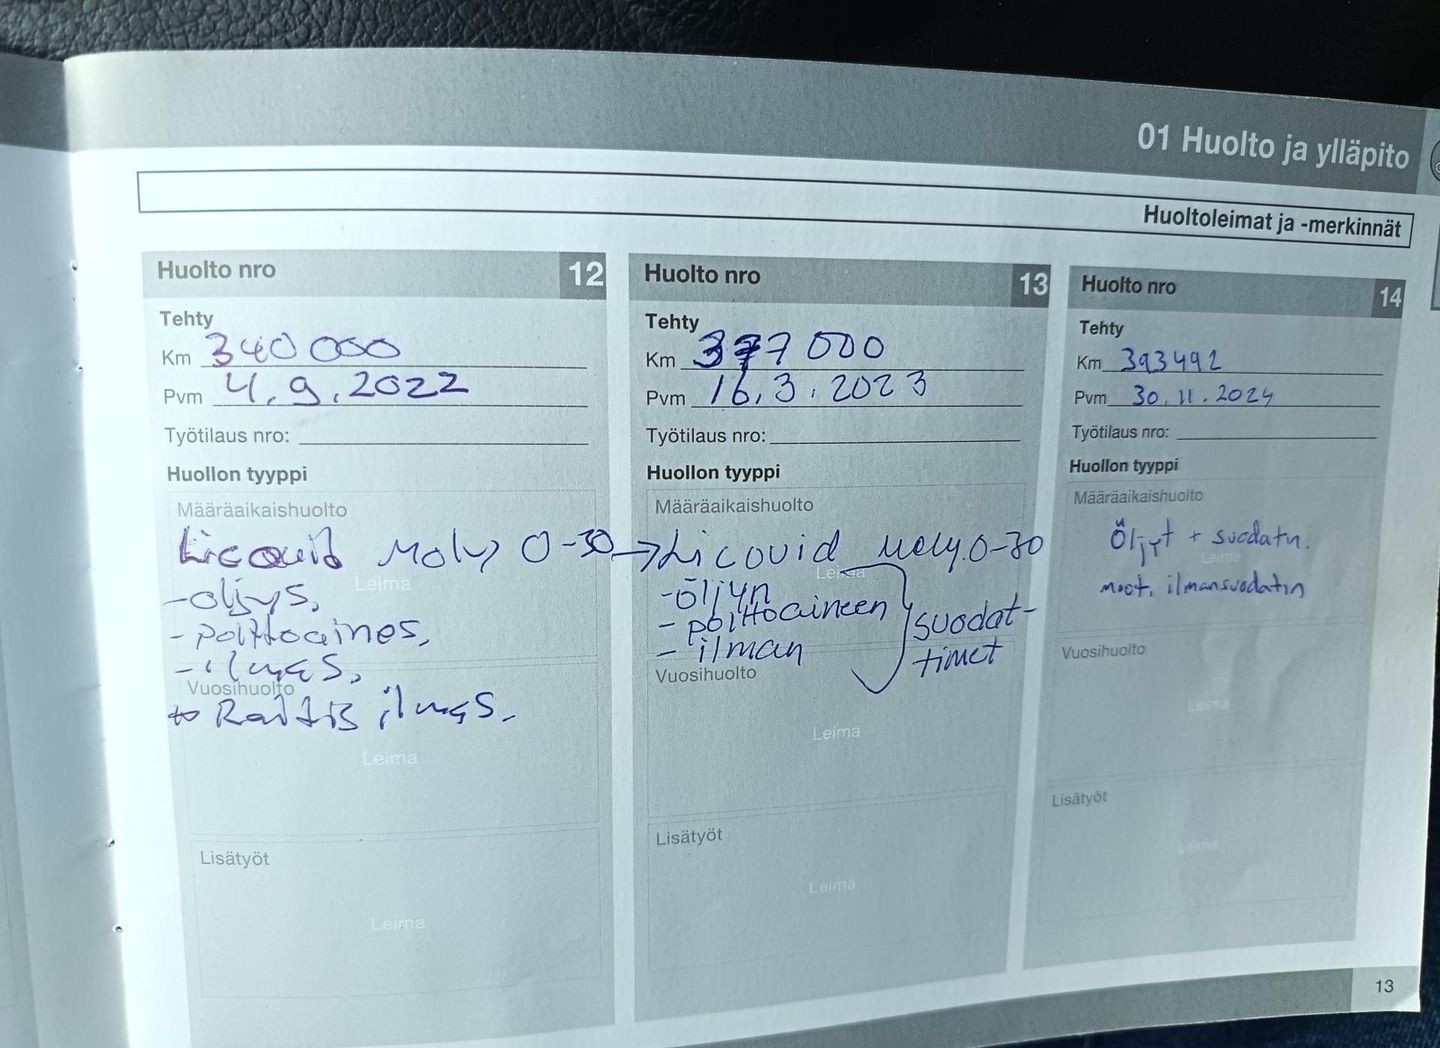 01 Huolto ja ylläpito
Huoltoleimat ja -merkinnät
Huolto nro 12
Tehty
Km 340 000
Pvm 4.9.2022
Työtilaus nro:
Huollon tyyppi
Määräaikaishuolto
Licouid Moly 0-30
Leima
-öljys,
-polttoaines,
-ilmas,
Vuosihuolto
Raitis ilmas.
Leima
Lisätyöt
Leima
Huolto nro 13
Tehty
Km 377 000
Pvm 16.3.2023
Työtilaus nro:
Huollon tyyppi
Määräaikaishuolto
→Licouid Moly.0-30
Leima
-öljyn
-polttoaineen
-ilman
suodat-
timet
Vuosihuolto
Leima
Lisätyöt
Leima
Huolto nro 14
Tehty
Km 393492
Pvm 30.11.2024
Työtilaus nro:
Huollon tyyppi
Määräaikaishuolto
Öljyt + suodatin.
Leima
moot. ilmansuodatin
Vuosihuolto
Leima
Lisätyöt
Leima
13